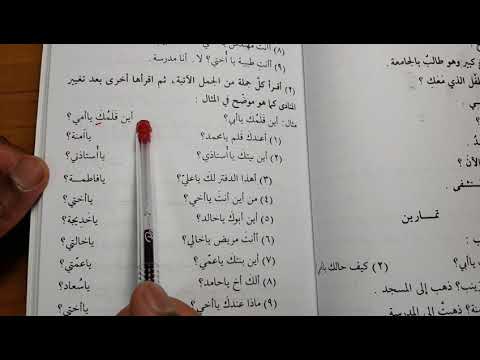 (٨) أأنت مهندس
(٩) أأنت طبيبة يا أختي؟ لا . أنا مدرسة .
(٢) اقرأ كلّ جملة من الجمل الآتية، ثم اقرأها أخرى بعد تغيير
المنادى كما هو موضّح في المثال :
مثال: أين قلمُكَ ياأبي؟ أين قلمُكِ ياأمي؟
(١) أعندك قلم يامحمد؟ ياآمنة؟
(٢) أين بيتك ياأستاذي؟ ياأستاذتي؟
(٣) أهذا الدفتر لك ياعليّ؟ يافاطمة؟
(٤) من أين أنت ياأخي؟ ياأختي؟
(٥) أين أبوك ياخالد؟ ياخديجة؟
(٦) أأنت مريض ياخالي؟ ياخالتي؟
(٧) أين بنتك ياعمّي؟ ياعمّتي؟
(٨) ألك أخ ياحامد؟ ياسُعاد؟
(٩) ماذا عندك ياأخي؟ ياأختي؟
كبير وهو طالبٌ بالجامعة.
الذي مَعَك ؟
تمـارين
ياأبي؟ (٢) كيف حالك
ذهب إلى المسجد .
ذهبتْ إلى المدرسة